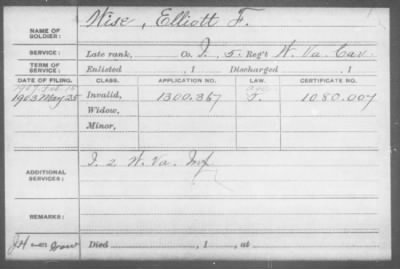 NAME OF SOLDIER: Wise, Elliott F.
SERVICE: Late rank, Co. I, 5 Reg't W. Va. Cav.
TERM OF SERVICE: Enlisted , 1 Discharged , 1
DATE OF FILING. CLASS. APPLICATION NO. LAW. CERTIFICATE NO.
1903 May 25 Invalid, 1300.367 J. 1080.007
Widow,
Minor,
ADDITIONAL SERVICES: I 2 W. Va. Inf
REMARKS:
Died , 1 , at